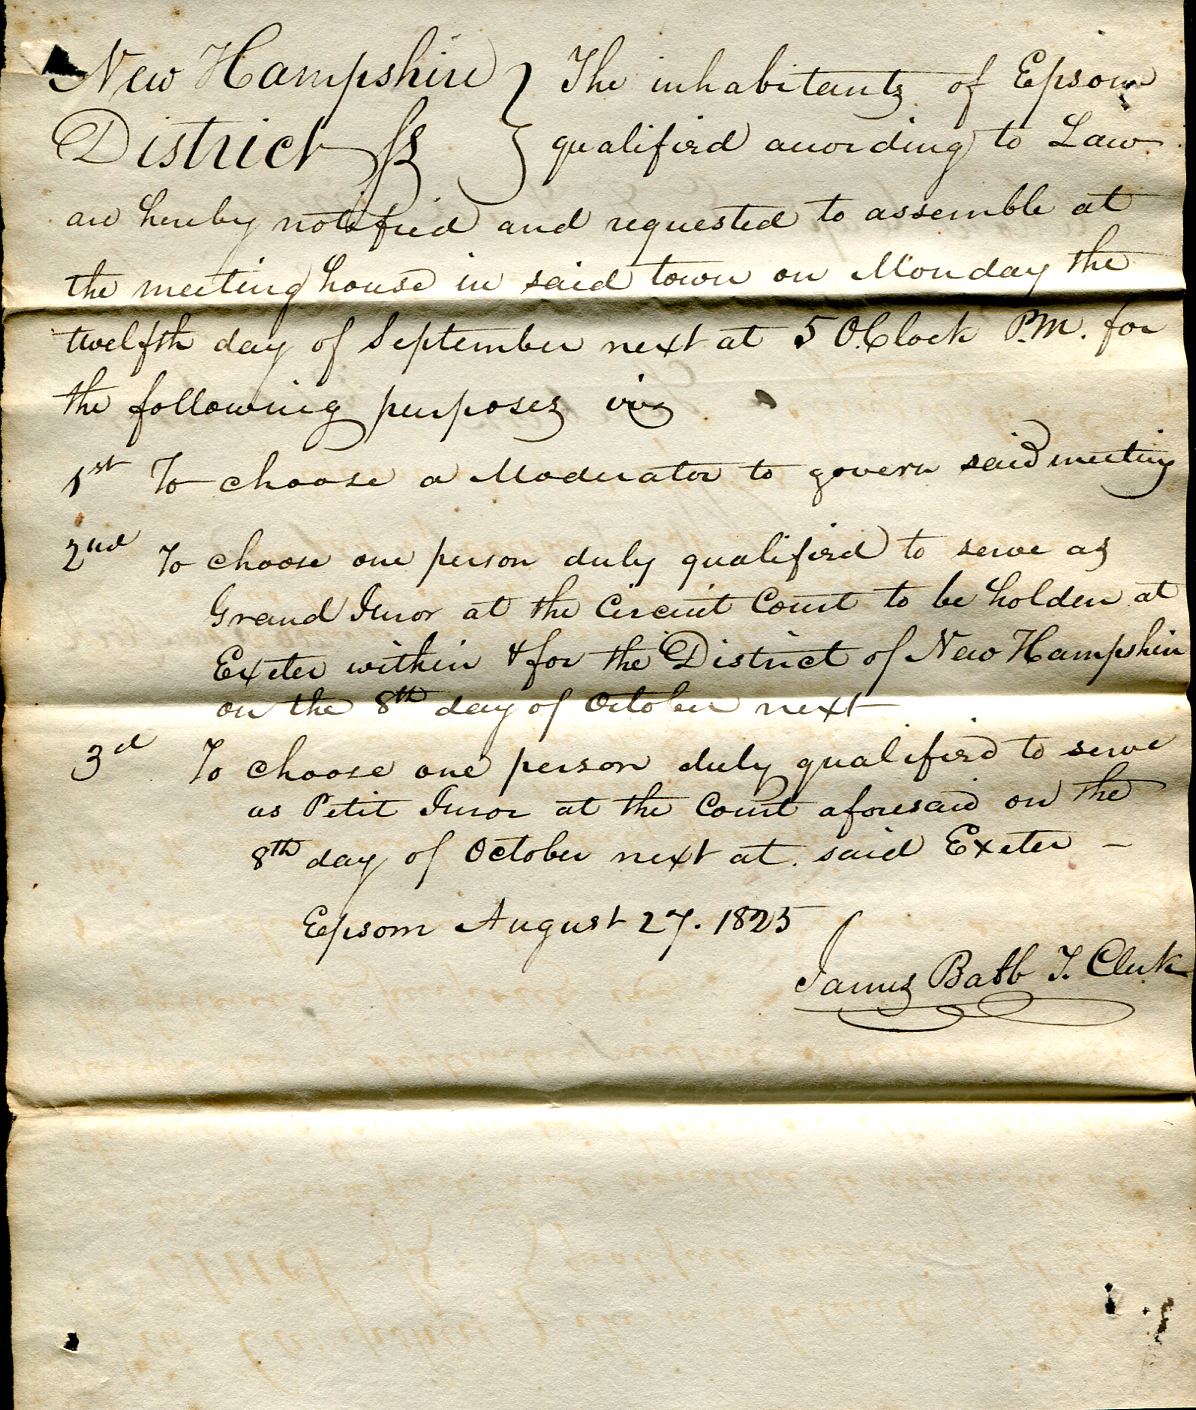 New Hampshire } The inhabitants of Epsom
District ss } qualified according to Law
are hereby notified and requested to assemble at
the meeting house in said town on Monday the
twelfth day of September next at 5 O.Clock P.M. for
the following purposes viz
1st To choose a Moderator to govern said meeting
2nd To choose one person duly qualified to serve as
Grand Juror at the Circuit Court to be holden at
Exeter within & for the District of New Hampshire
on the 8th day of October next
3d To choose one person duly qualified to serve
as Petit Juror at the Court aforesaid on the
8th day of October next at said Exeter —
Epsom August 27. 1825
James Babb T. Clerk